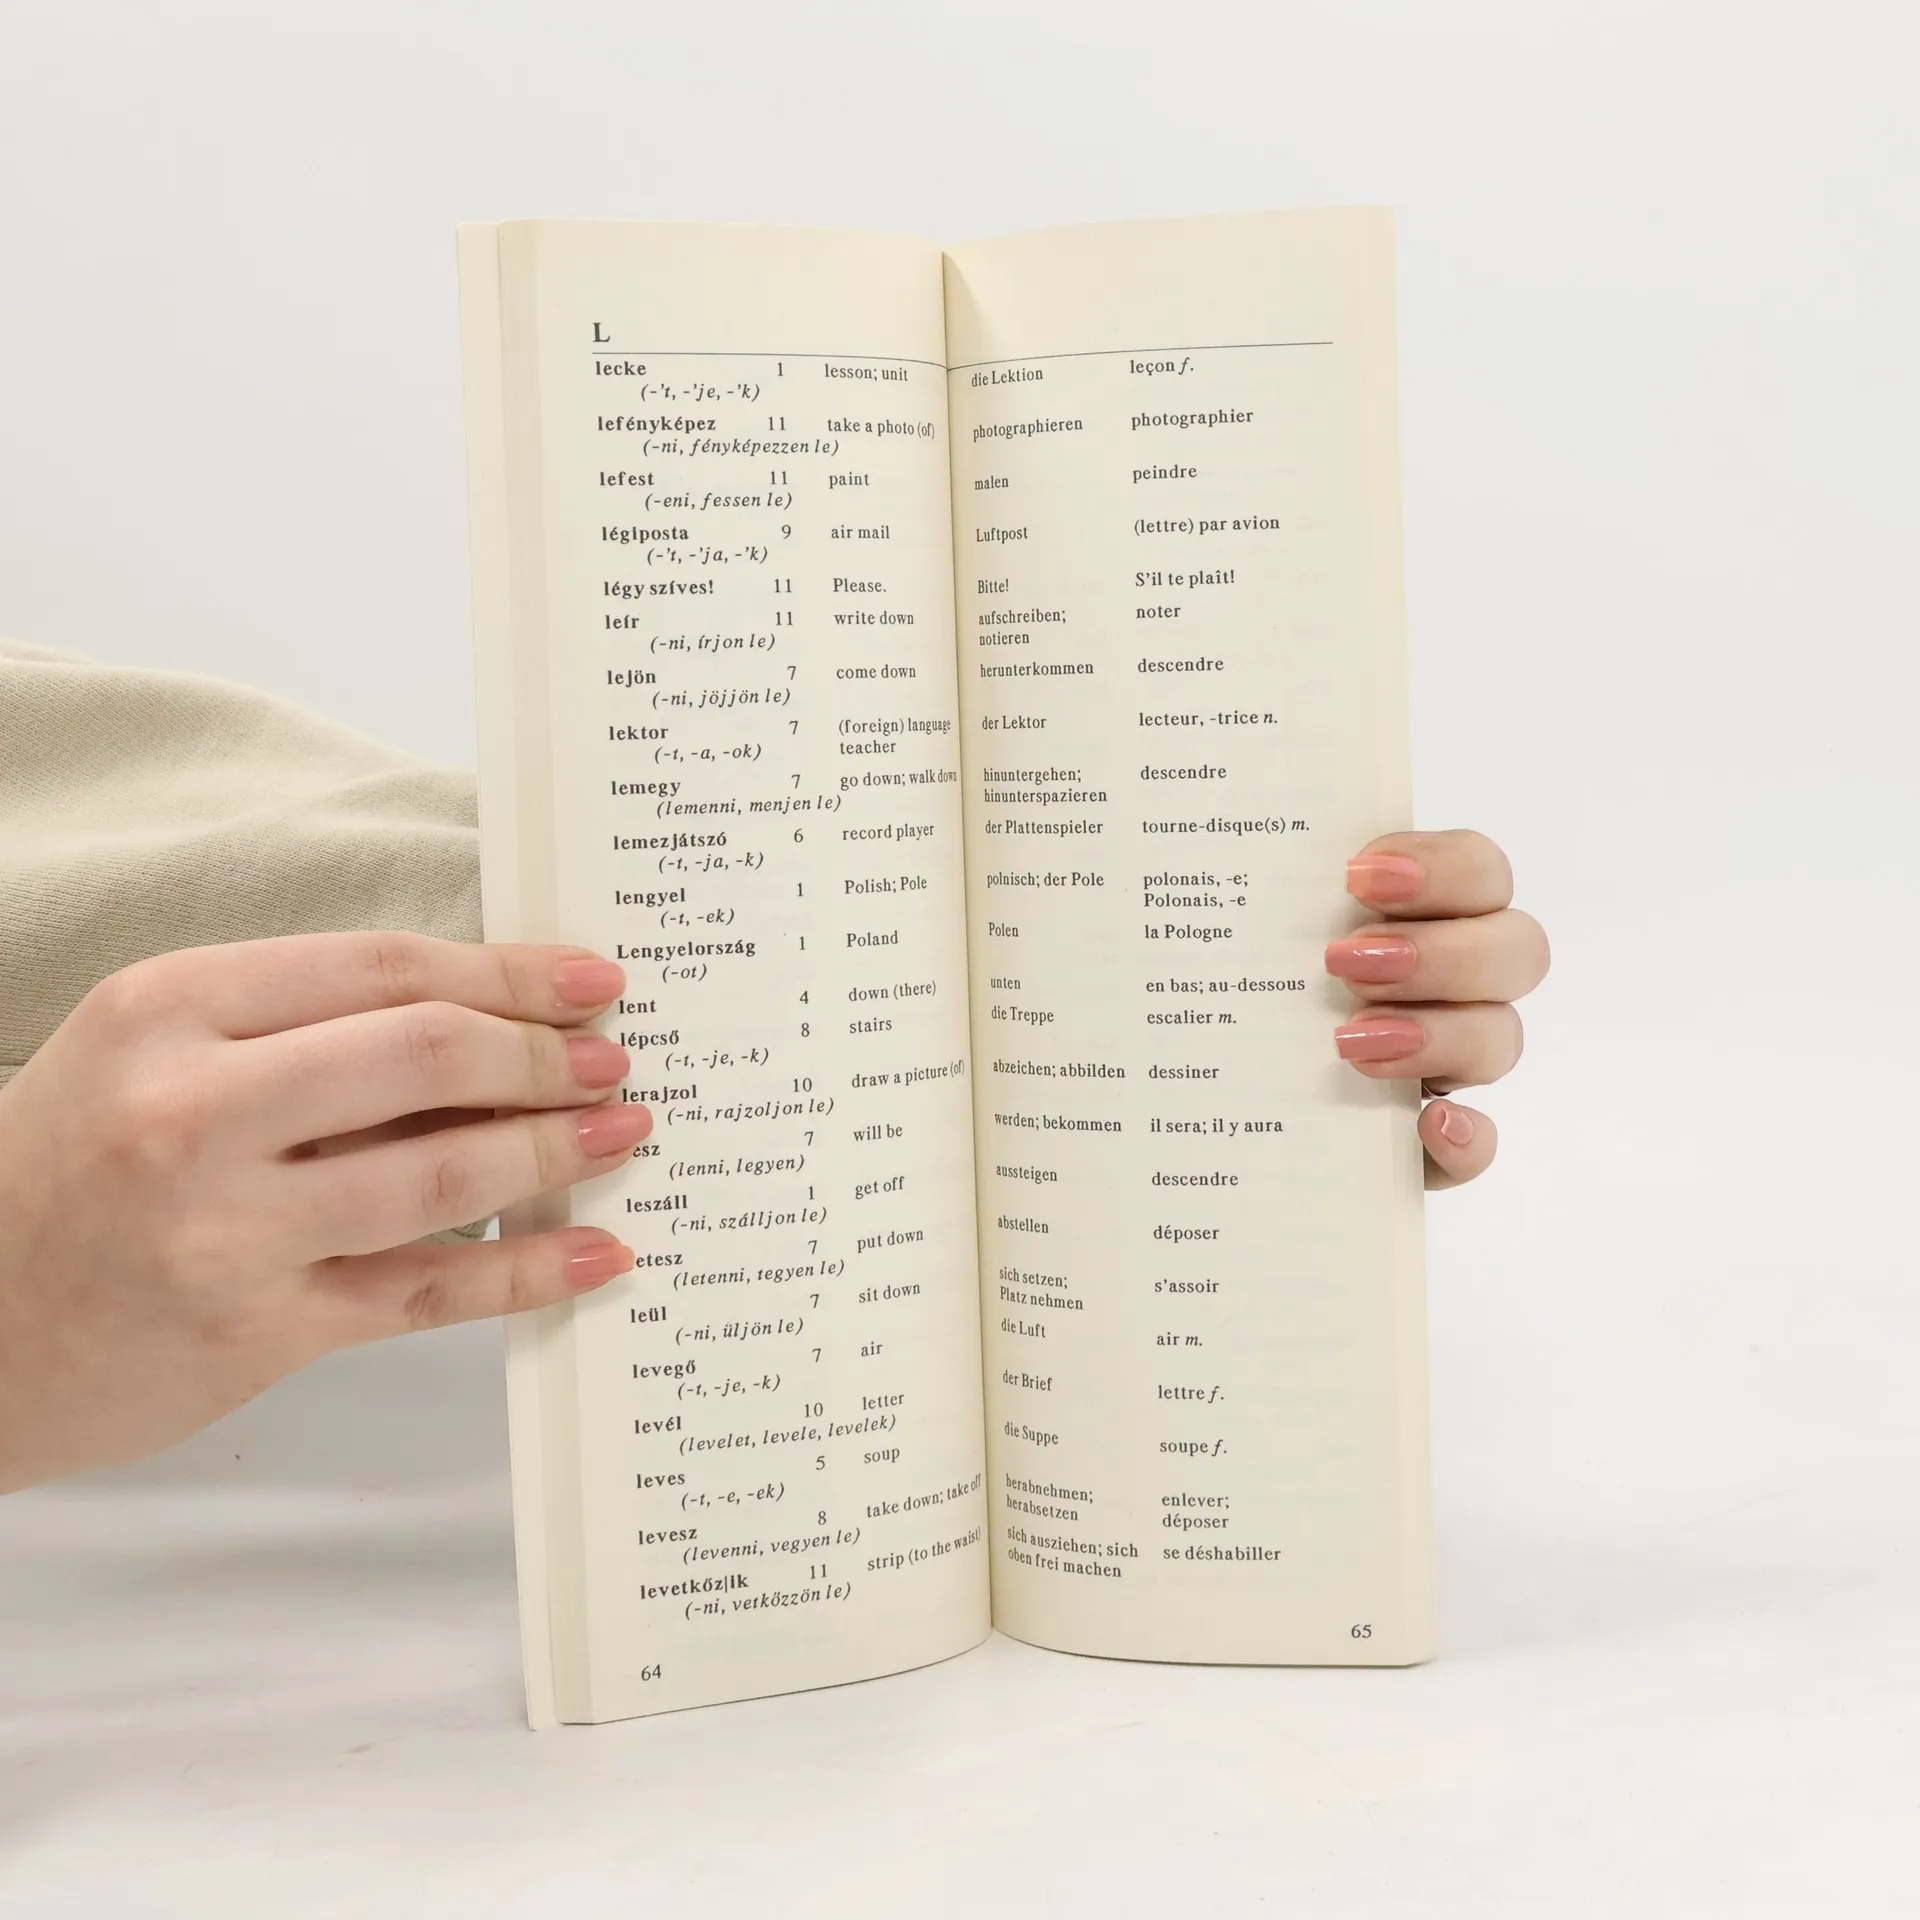 L
lecke 1 lesson; unit
(-'t, -'je, -'k)
lefényképez 11 take a photo (of)
(-ni, fényképezzen le)
lefest 11 paint
(-eni, fessen le)
légiposta 9 air mail
(-'t, -'ja, -'k)
légy szíves! 11 Please.
leír 11 write down
(-ni, írjon le)
lejön 7 come down
(-ni, jöjjön le)
lektor 7 (foreign) language
(-t, -a, -ok) teacher
lemegy 7 go down; walk down
(lemenni, menjen le)
lemezjátszó 6 record player
(-t, -ja, -k)
lengyel 1 Polish; Pole
(-t, -ek)
Lengyelország 1 Poland
(-ot)
lent 4 down (there)
lépcső 8 stairs
(-t, -je, -k)
lerajzol 10 draw a picture (of)
(-ni, rajzoljon le)
esz 7 will be
(lenni, legyen)
leszáll 1 get off
(-ni, szálljon le)
etesz 7 put down
(letenni, tegyen le)
leül 7 sit down
(-ni, üljön le)
levegő 7 air
(-t, -je, -k)
levél 10 letter
(levelet, levele, levelek)
leves 5 soup
(-t, -e, -ek)
levesz 8 take down; take off
(levenni, vegyen le)
levetkőz|ik 11 strip (to the waist)
(-ni, vetkőzzön le)
64
die Lektion leçon f.
photographieren photographier
malen peindre
Luftpost (lettre) par avion
Bitte! S'il te plaît!
aufschreiben; noter
notieren
herunterkommen descendre
der Lektor lecteur, -trice n.
hinuntergehen; descendre
hinunterspazieren
der Plattenspieler tourne-disque(s) m.
polnisch; der Pole polonais, -e;
Polonais, -e
Polen la Pologne
unten en bas; au-dessous
die Treppe escalier m.
abzeichen; abbilden dessiner
werden; bekommen il sera; il y aura
aussteigen descendre
abstellen déposer
sich setzen; s'assoir
Platz nehmen
die Luft air m.
der Brief lettre f.
die Suppe soupe f.
herabnehmen; enlever;
herabsetzen déposer
sich ausziehen; sich se déshabiller
oben frei machen
65